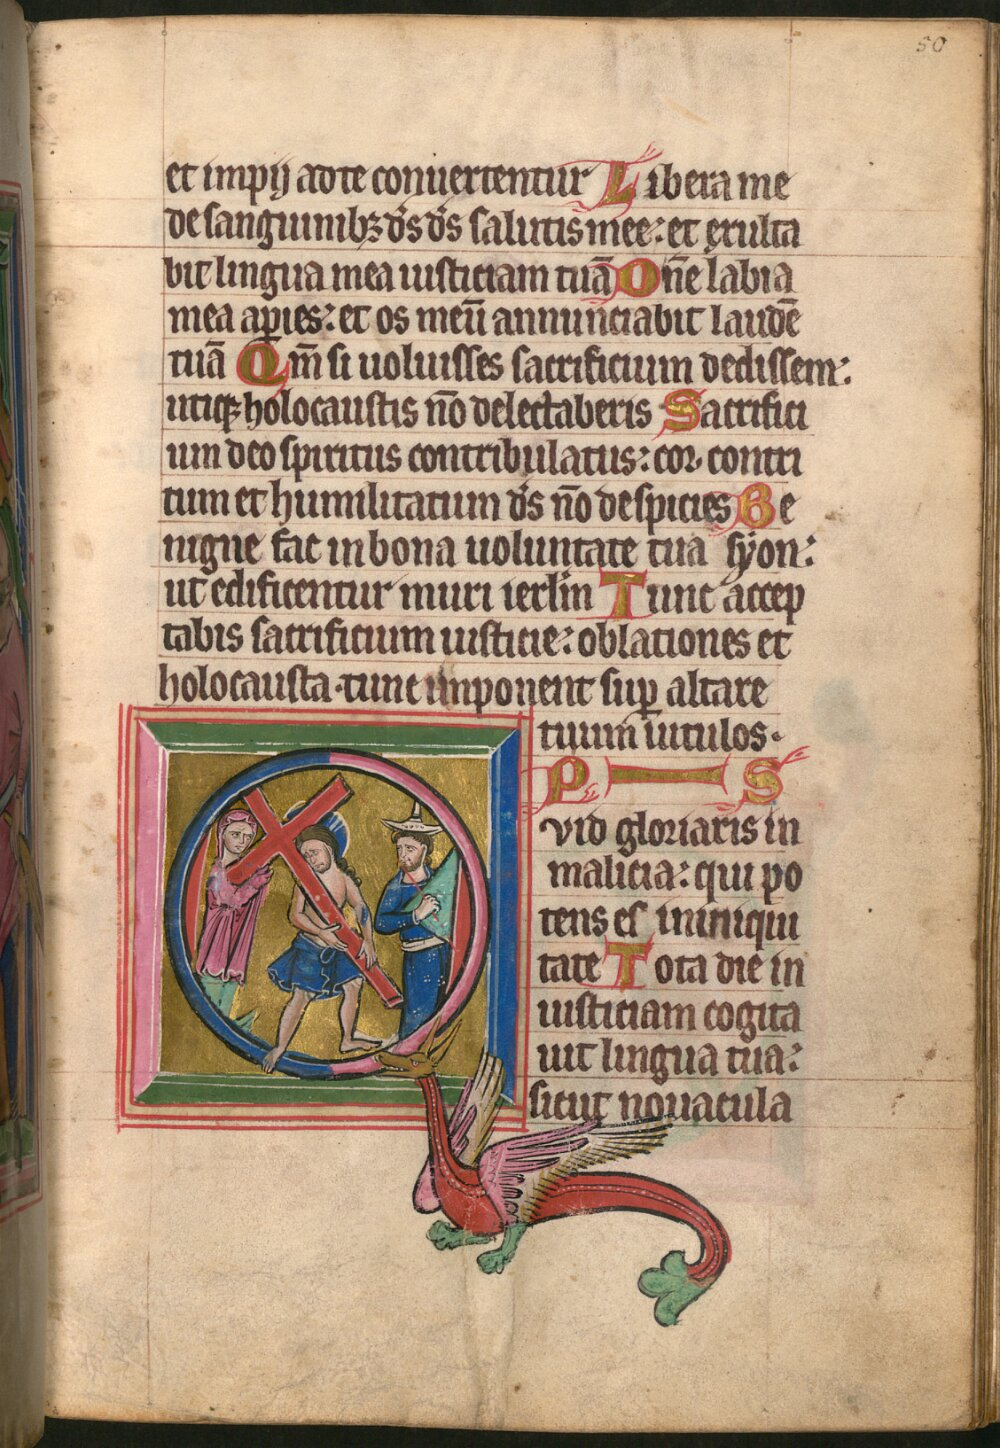 50
et impij ad te conuertentur Libera me
de sanguinibꝫ d̄s d̄s salutis mee: et exulta
bit lingua mea iusticiam tuā Dn̄e labia
mea apies: et os meū annunciabit laudē
tuā Qm̄ si uoluisses sacrificium dedissem:
utiqꝫ holocaustis nō delectaberis Sacrifici
um deo spiritus contribulatus: cor contri
tum et humilitatum d̄s nō despicies Be
nigne fac in bona uoluntate tua syon:
ut edificentur muri ierl̄m Tunc accep
tabis sacrificium iusticie: oblationes et
holocausta·tunc imponent sup altare
tuum uitulos·
P S
Qvid gloriaris in
malicia: qui po
tens es in iniqui
tate Tota die in
iusticiam cogita
uit lingua tua:
sicut nouacula